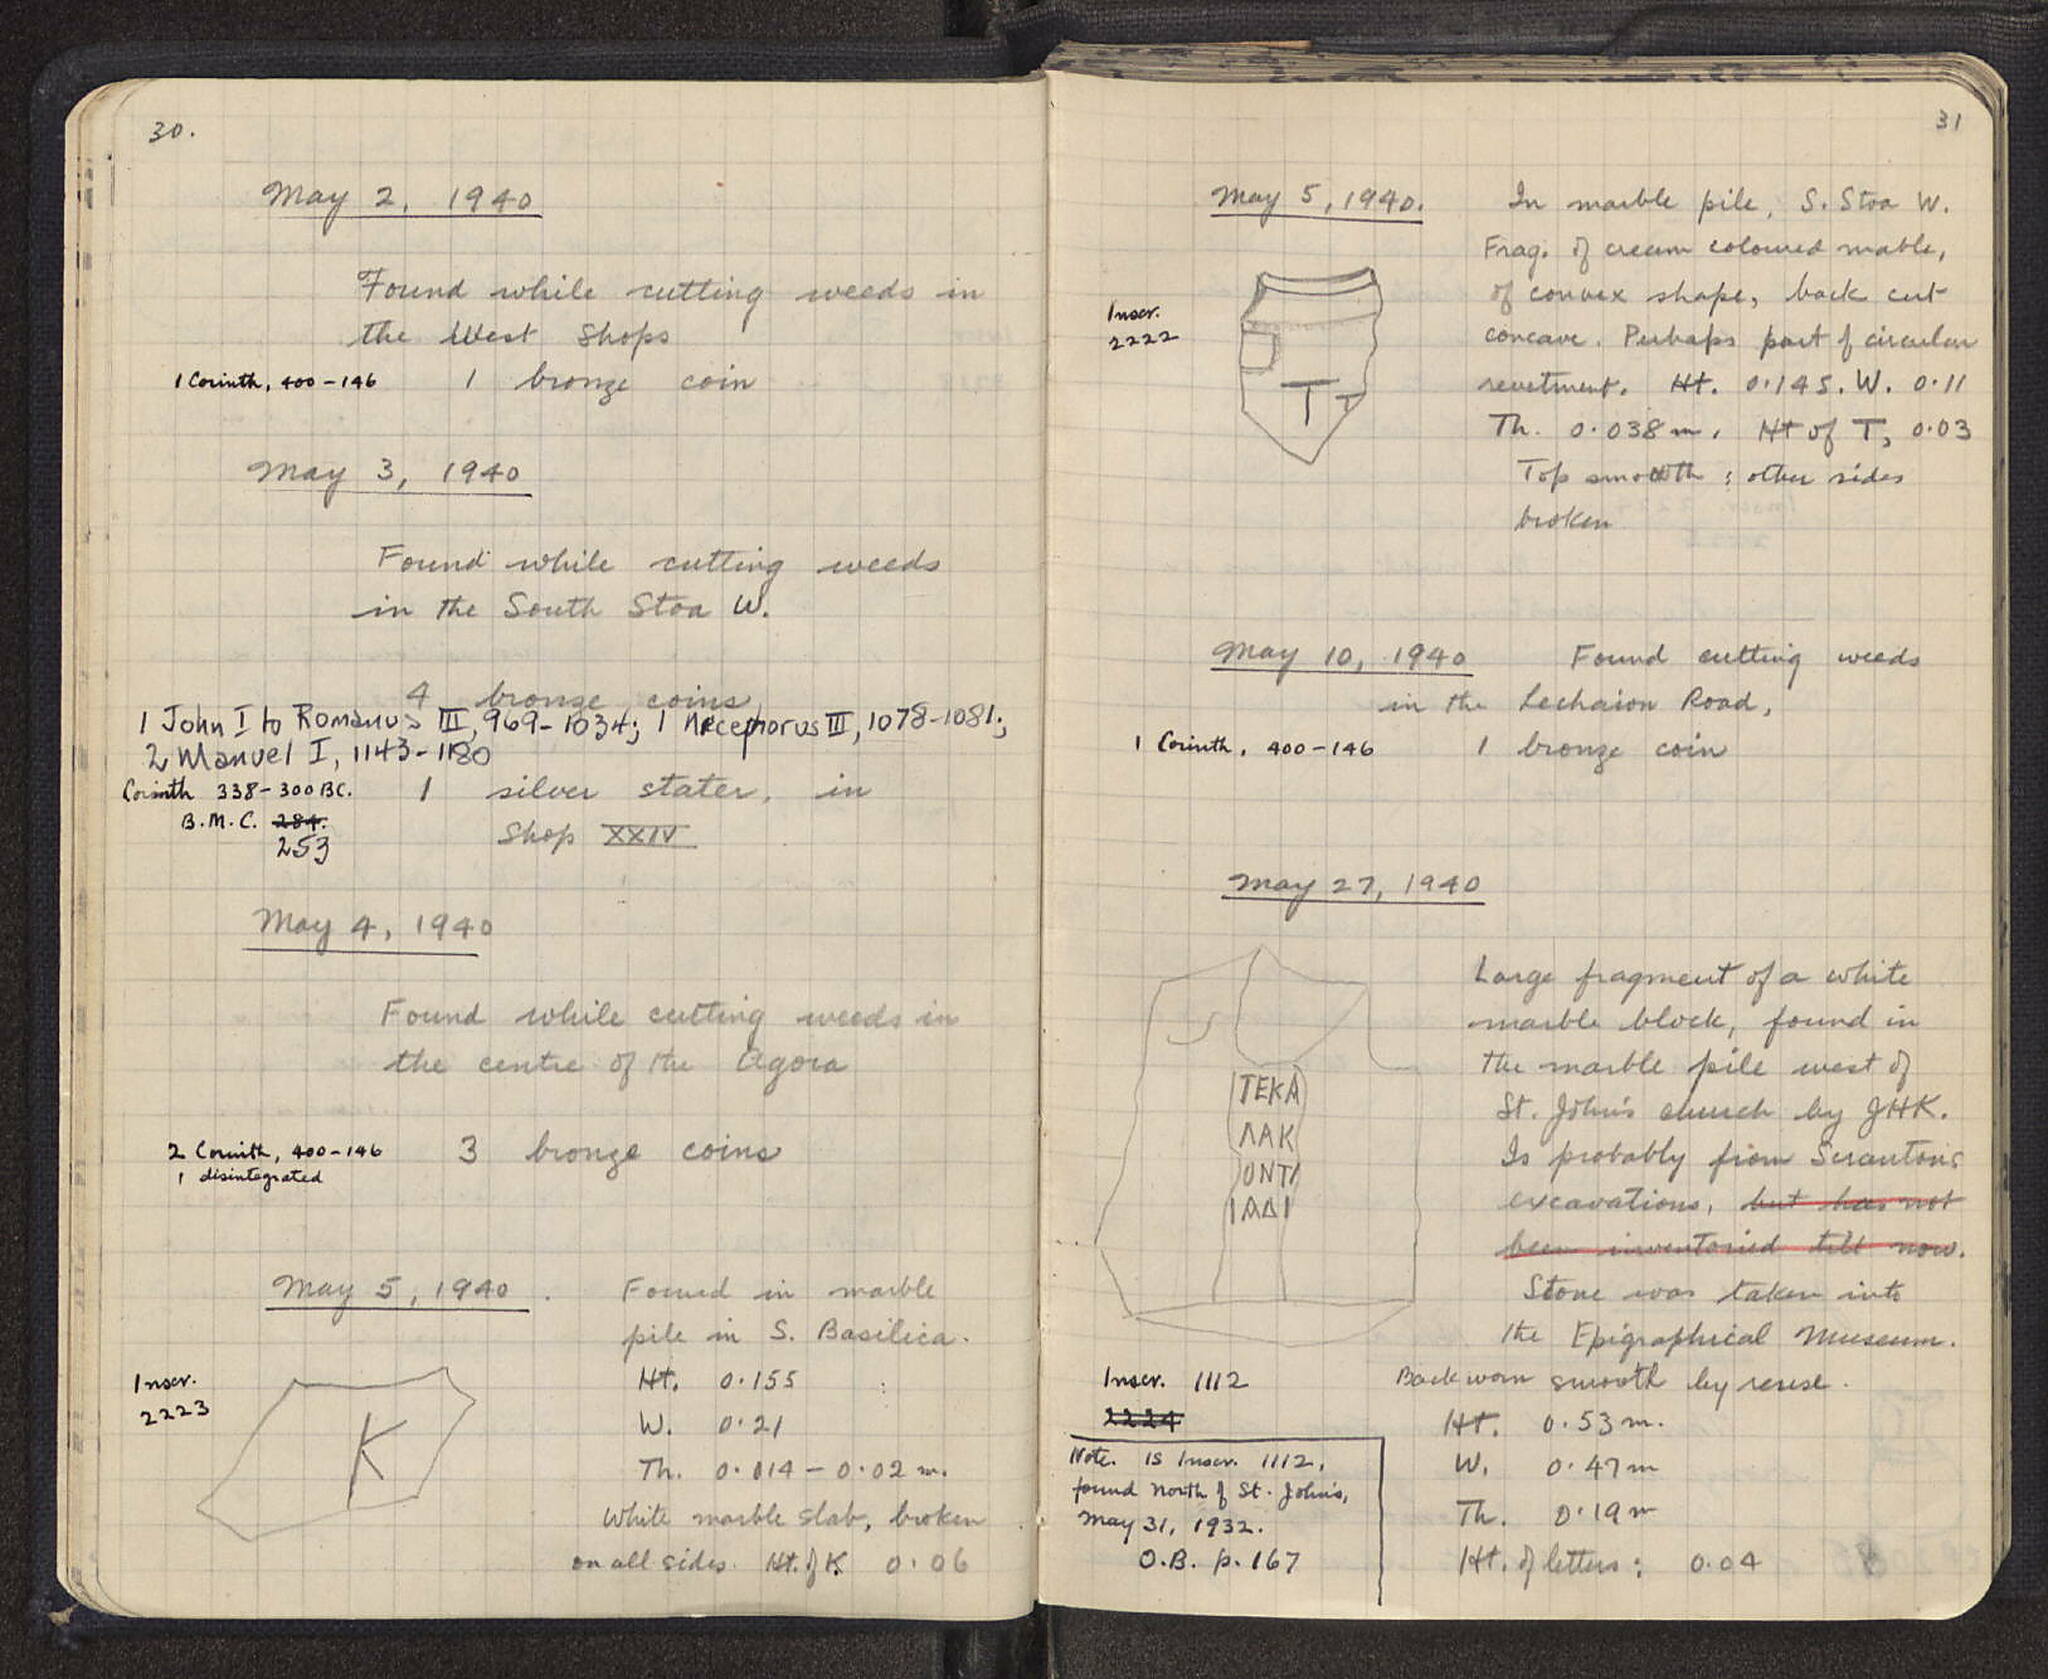 30.
May 2, 1940
Found while cutting weeds in
the West Shops
1 Corinth, 400-146 1 bronze coin
May 3, 1940
Found while cutting weeds
in the South Stoa W.
4 bronze coins
1 John I to Romanus III, 969-1034; 1 Nicephorus III, 1078-1081;
2 Manuel I, 1143-1180
Corinth 338-300 BC. 1 silver stater, in
B.M.C. 284. Shop XXIV
253
May 4, 1940
Found while cutting weeds in
the centre of the Agora
2 Corinth, 400-146 3 bronze coins
1 disintegrated
May 5, 1940. Found in marble
pile in S. Basilica.
Inscr. Ht. 0.155
2223 W. 0.21
K
Th. 0.014 - 0.02 m.
White marble slab, broken
on all sides. Ht. of K 0.06
31
May 5, 1940. In marble pile, S. Stoa W.
Frag. of cream coloured mable,
Inscr. of convex shape, back cut
2222 concave. Perhaps part of circular
revetment. Ht. 0.145. W. 0.11
T T
Th. 0.038 m. Ht of T, 0.03
Top smooth; other sides
broken
May 10, 1940 Found cutting weeds
in the Lechaion Road,
1 Corinth, 400-146 1 bronze coin
May 27, 1940
Large fragment of a white
marble block, found in
the marble pile west of
St. John's church by JHK.
Is probably from Scranton's
excavations, but has not
been inventoried till now.
Stone was taken into
the Epigraphical Museum.
ΤΕΚΑ
ΛΑΚ
ΟΝΤΙ
ΙΑΔΙ
Inscr. 1112 Back worn smooth by reuse.
2224 Ht. 0.53 m.
W. 0.47 m
Th. 0.19 m
Ht. of letters: 0.04
Note. Is Inscr. 1112,
found North of St. John's,
May 31, 1932.
O.B. p. 167